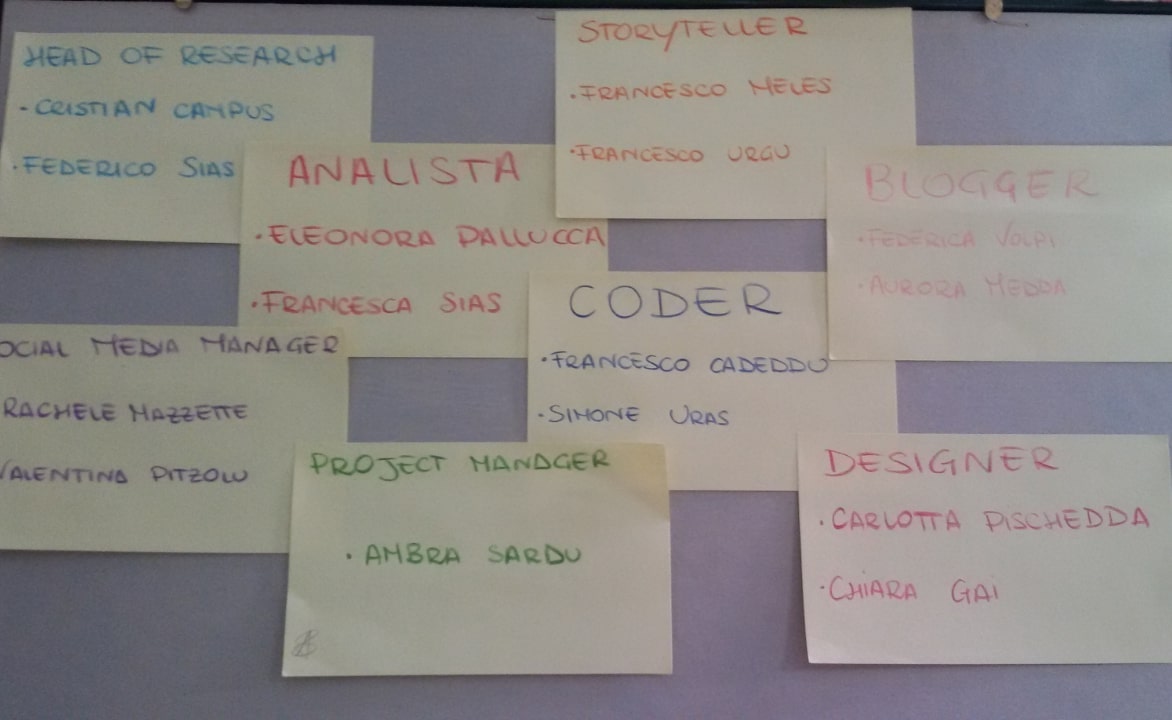 HEAD OF RESEARCH
· CRISTIAN CAMPUS
· FEDERICO SIAS
STORYTELLER
· FRANCESCO MELES
· FRANCESCO URGU
ANALISTA
· ELEONORA PALLUCCA
· FRANCESCA SIAS
BLOGGER
· FEDERICA VOLPI
· AURORA MEDDA
OCIAL MEDIA MANAGER
RACHELE MAZZETTE
VALENTINA PITZOLU
CODER
· FRANCESCO CADEDDU
· SIMONE URAS
PROJECT MANAGER
· AMBRA SARDU
DESIGNER
· CARLOTTA PISCHEDDA
· CHIARA GAI